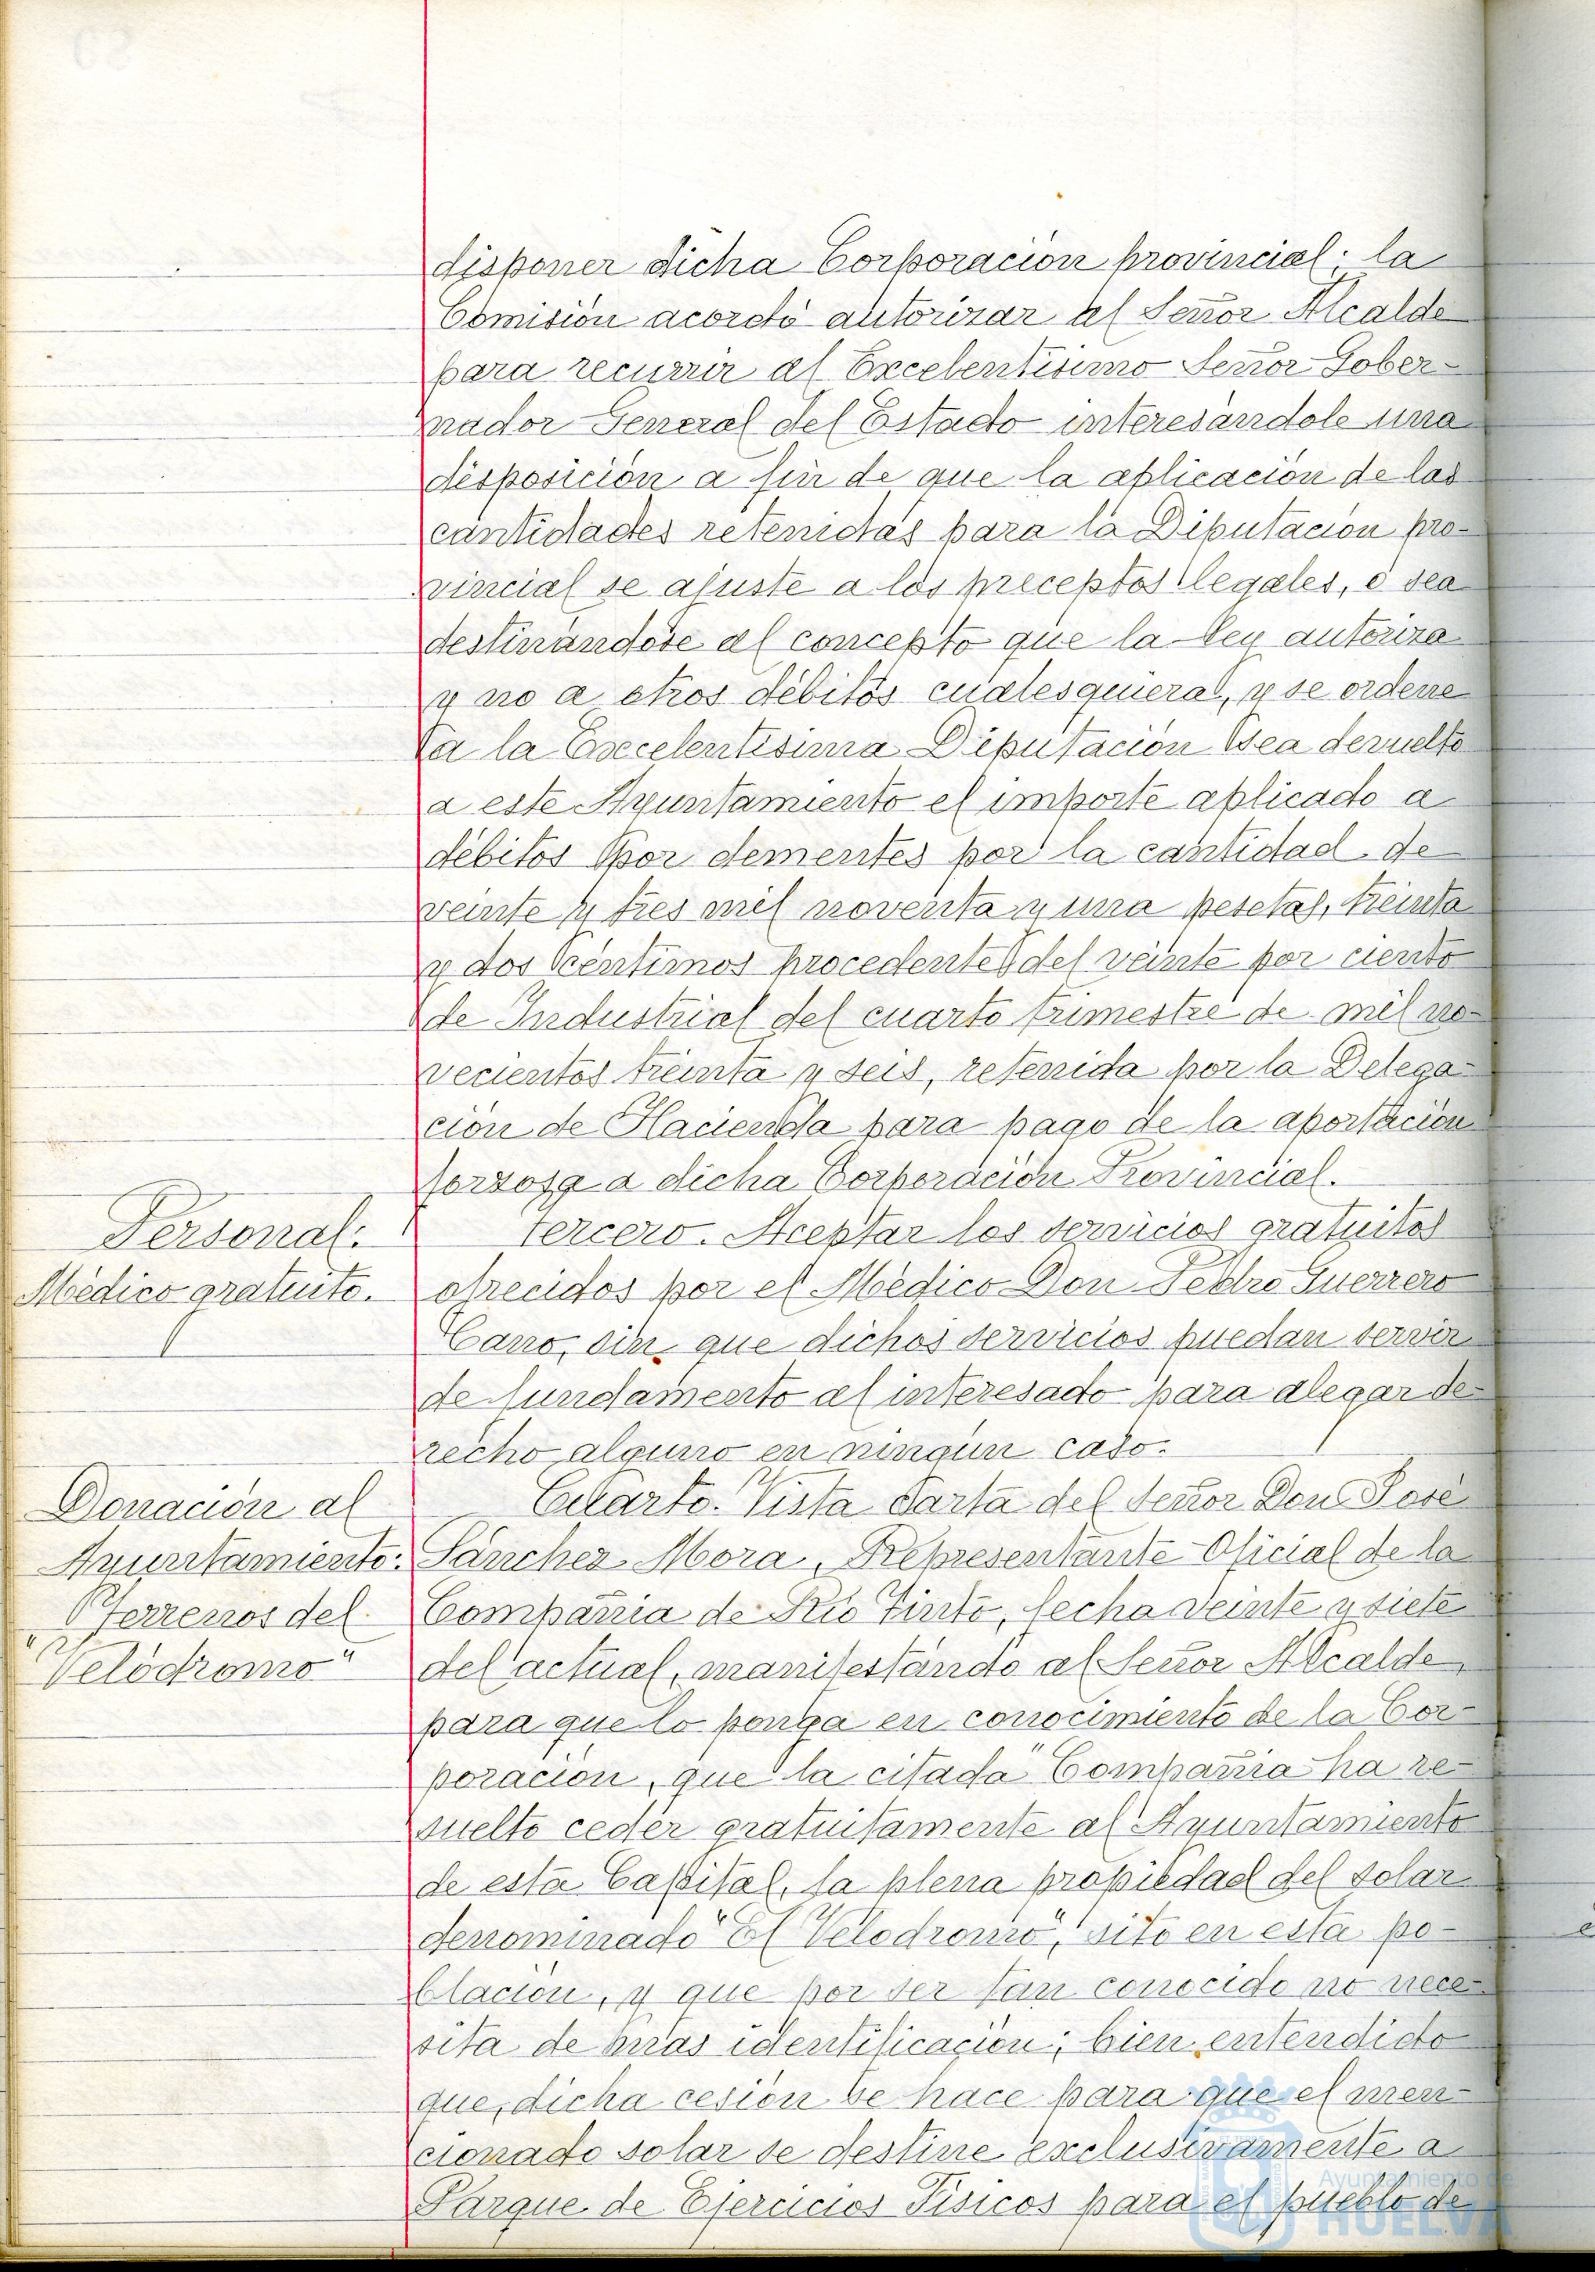 disponer dicha Corporación provincial; la
Comisión acordó autorizar al Señor Alcalde
para recurrir al Excelentísimo Señor Gober-
nador General del Estado interesándole una
disposición a fin de que la aplicación de las
cantidades retenidas para la Diputación pro-
vincial se ajuste a los preceptos legales, o sea
destinándose al concepto que la Ley autoriza
y no a otros débitos cualesquiera, y se ordene
a la Excelentísima Diputación sea devuelto
a este Ayuntamiento el importe aplicado a
débitos por dementes por la cantidad de
veinte y tres mil noventa y una pesetas, treinta
y dos céntimos procedentes del veinte por ciento
de Industrial del cuarto trimestre de mil no-
vecientos treinta y seis, retenida por la Delega-
ción de Hacienda para pago de la aportación
forzosa a dicha Corporación Provincial.
Personal:
Médico gratuito.
Tercero. Aceptar los servicios gratuitos
ofrecidos por el Médico Don Pedro Guerrero
Cano, sin que dichos servicios puedan servir
de fundamento al interesado para alegar de-
recho alguno en ningún caso.
Donación al
Ayuntamiento.
Terrenos del
"Velódromo"
Cuarto. Vista carta del Señor Don José
Sánchez Mora, Representante Oficial de la
Compañia de Rio Tinto, fecha veinte y siete
del actual, manifestando al Señor Alcalde,
para que lo ponga en conocimiento de la Cor-
poración, que la citada Compañia ha re-
suelto ceder gratuitamente al Ayuntamiento
de esta Capital, la plena propiedad del solar
denominado "El Velodromo", sito en esta po-
blación, y que por ser tan conocido no nece-
sita de mas identificación; bien entendido
que, dicha cesión se hace para que el men-
cionado solar se destine exclusivamente a
Parque de Ejercicios Fisicos para el pueblo de
Ayuntamiento de
HUELVA